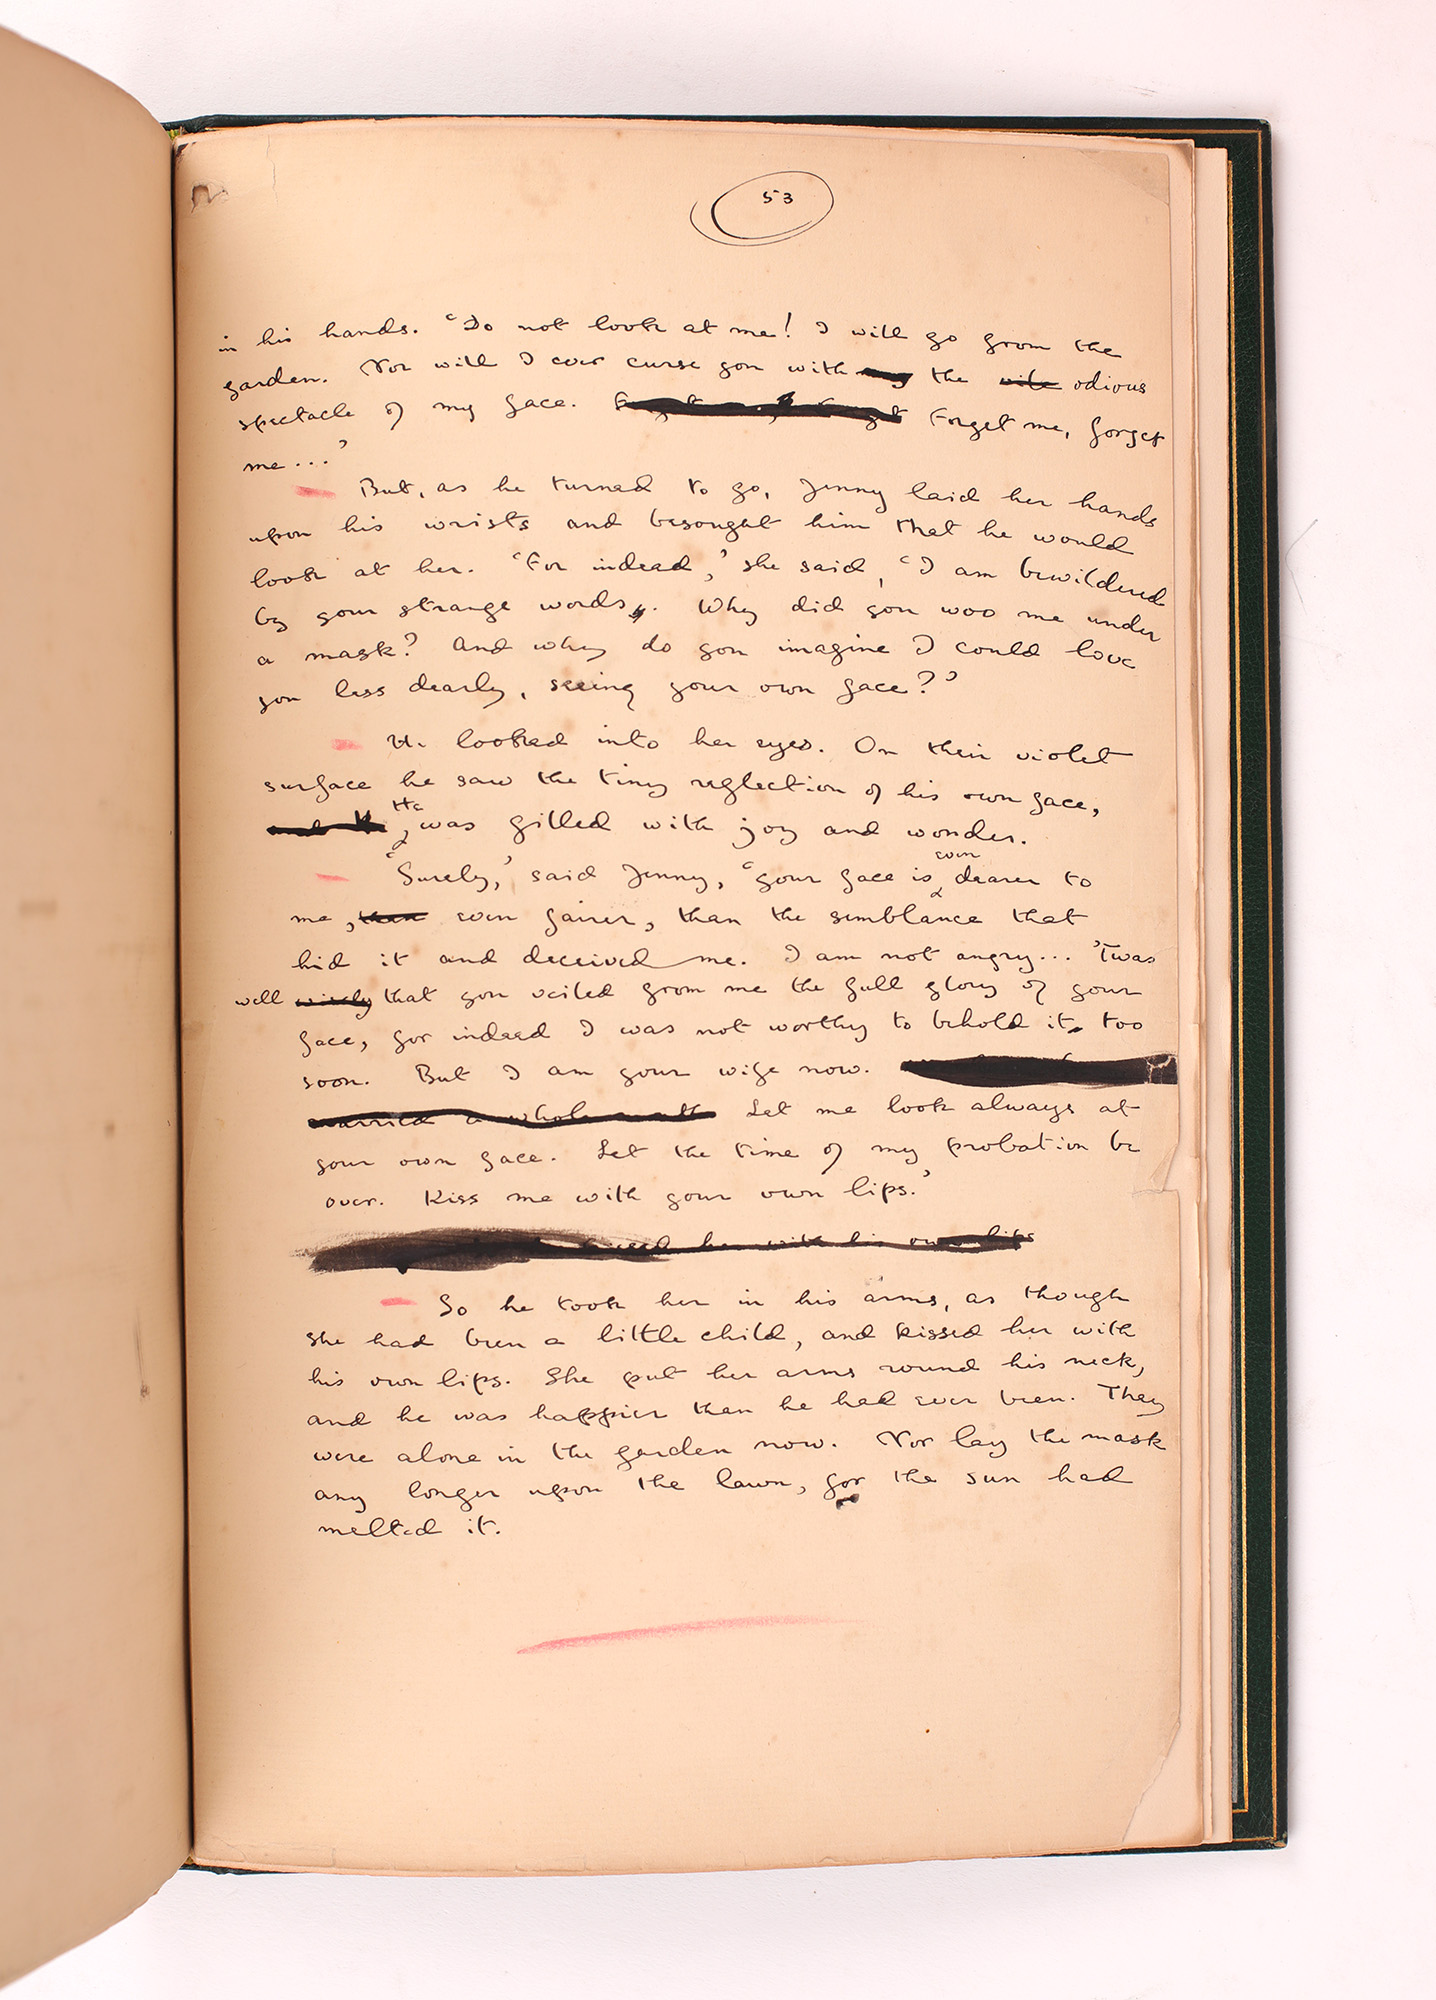 53
in his hands. 'Do not look at me! I will go from the
garden. Nor will I ever curse you with the vile odious
spectacle of my face. Forget me, forget
me...'
But, as he turned to go, Jenny laid her hands
upon his wrists and besought him that he would
look at her. 'For indeed,' she said, 'I am bewildered
by your strange words. Why did you woo me under
a mask? And why do you imagine I could love
you less dearly, seeing your own face?'
He looked into her eyes. On their violet
surface he saw the tiny reflection of his own face,
He was filled with joy and wonder.
'Surely,' said Jenny, 'your face is even dearer to
me, even fairer, than the semblance that
hid it and deceived me. I am not angry... 'Twas
well wisely that you veiled from me the full glory of your
face, for indeed I was not worthy to behold it too
soon. But I am your wife now.
married a whole month Let me look always at
your own face. Let the time of my probation be
over. Kiss me with your own lips.'
kissed her with his own lips
So he took her in his arms, as though
she had been a little child, and kissed her with
his own lips. She put her arms round his neck,
and he was happier than he had ever been. They
were alone in the garden now. Nor lay the mask
any longer upon the lawn, for the sun had
melted it.